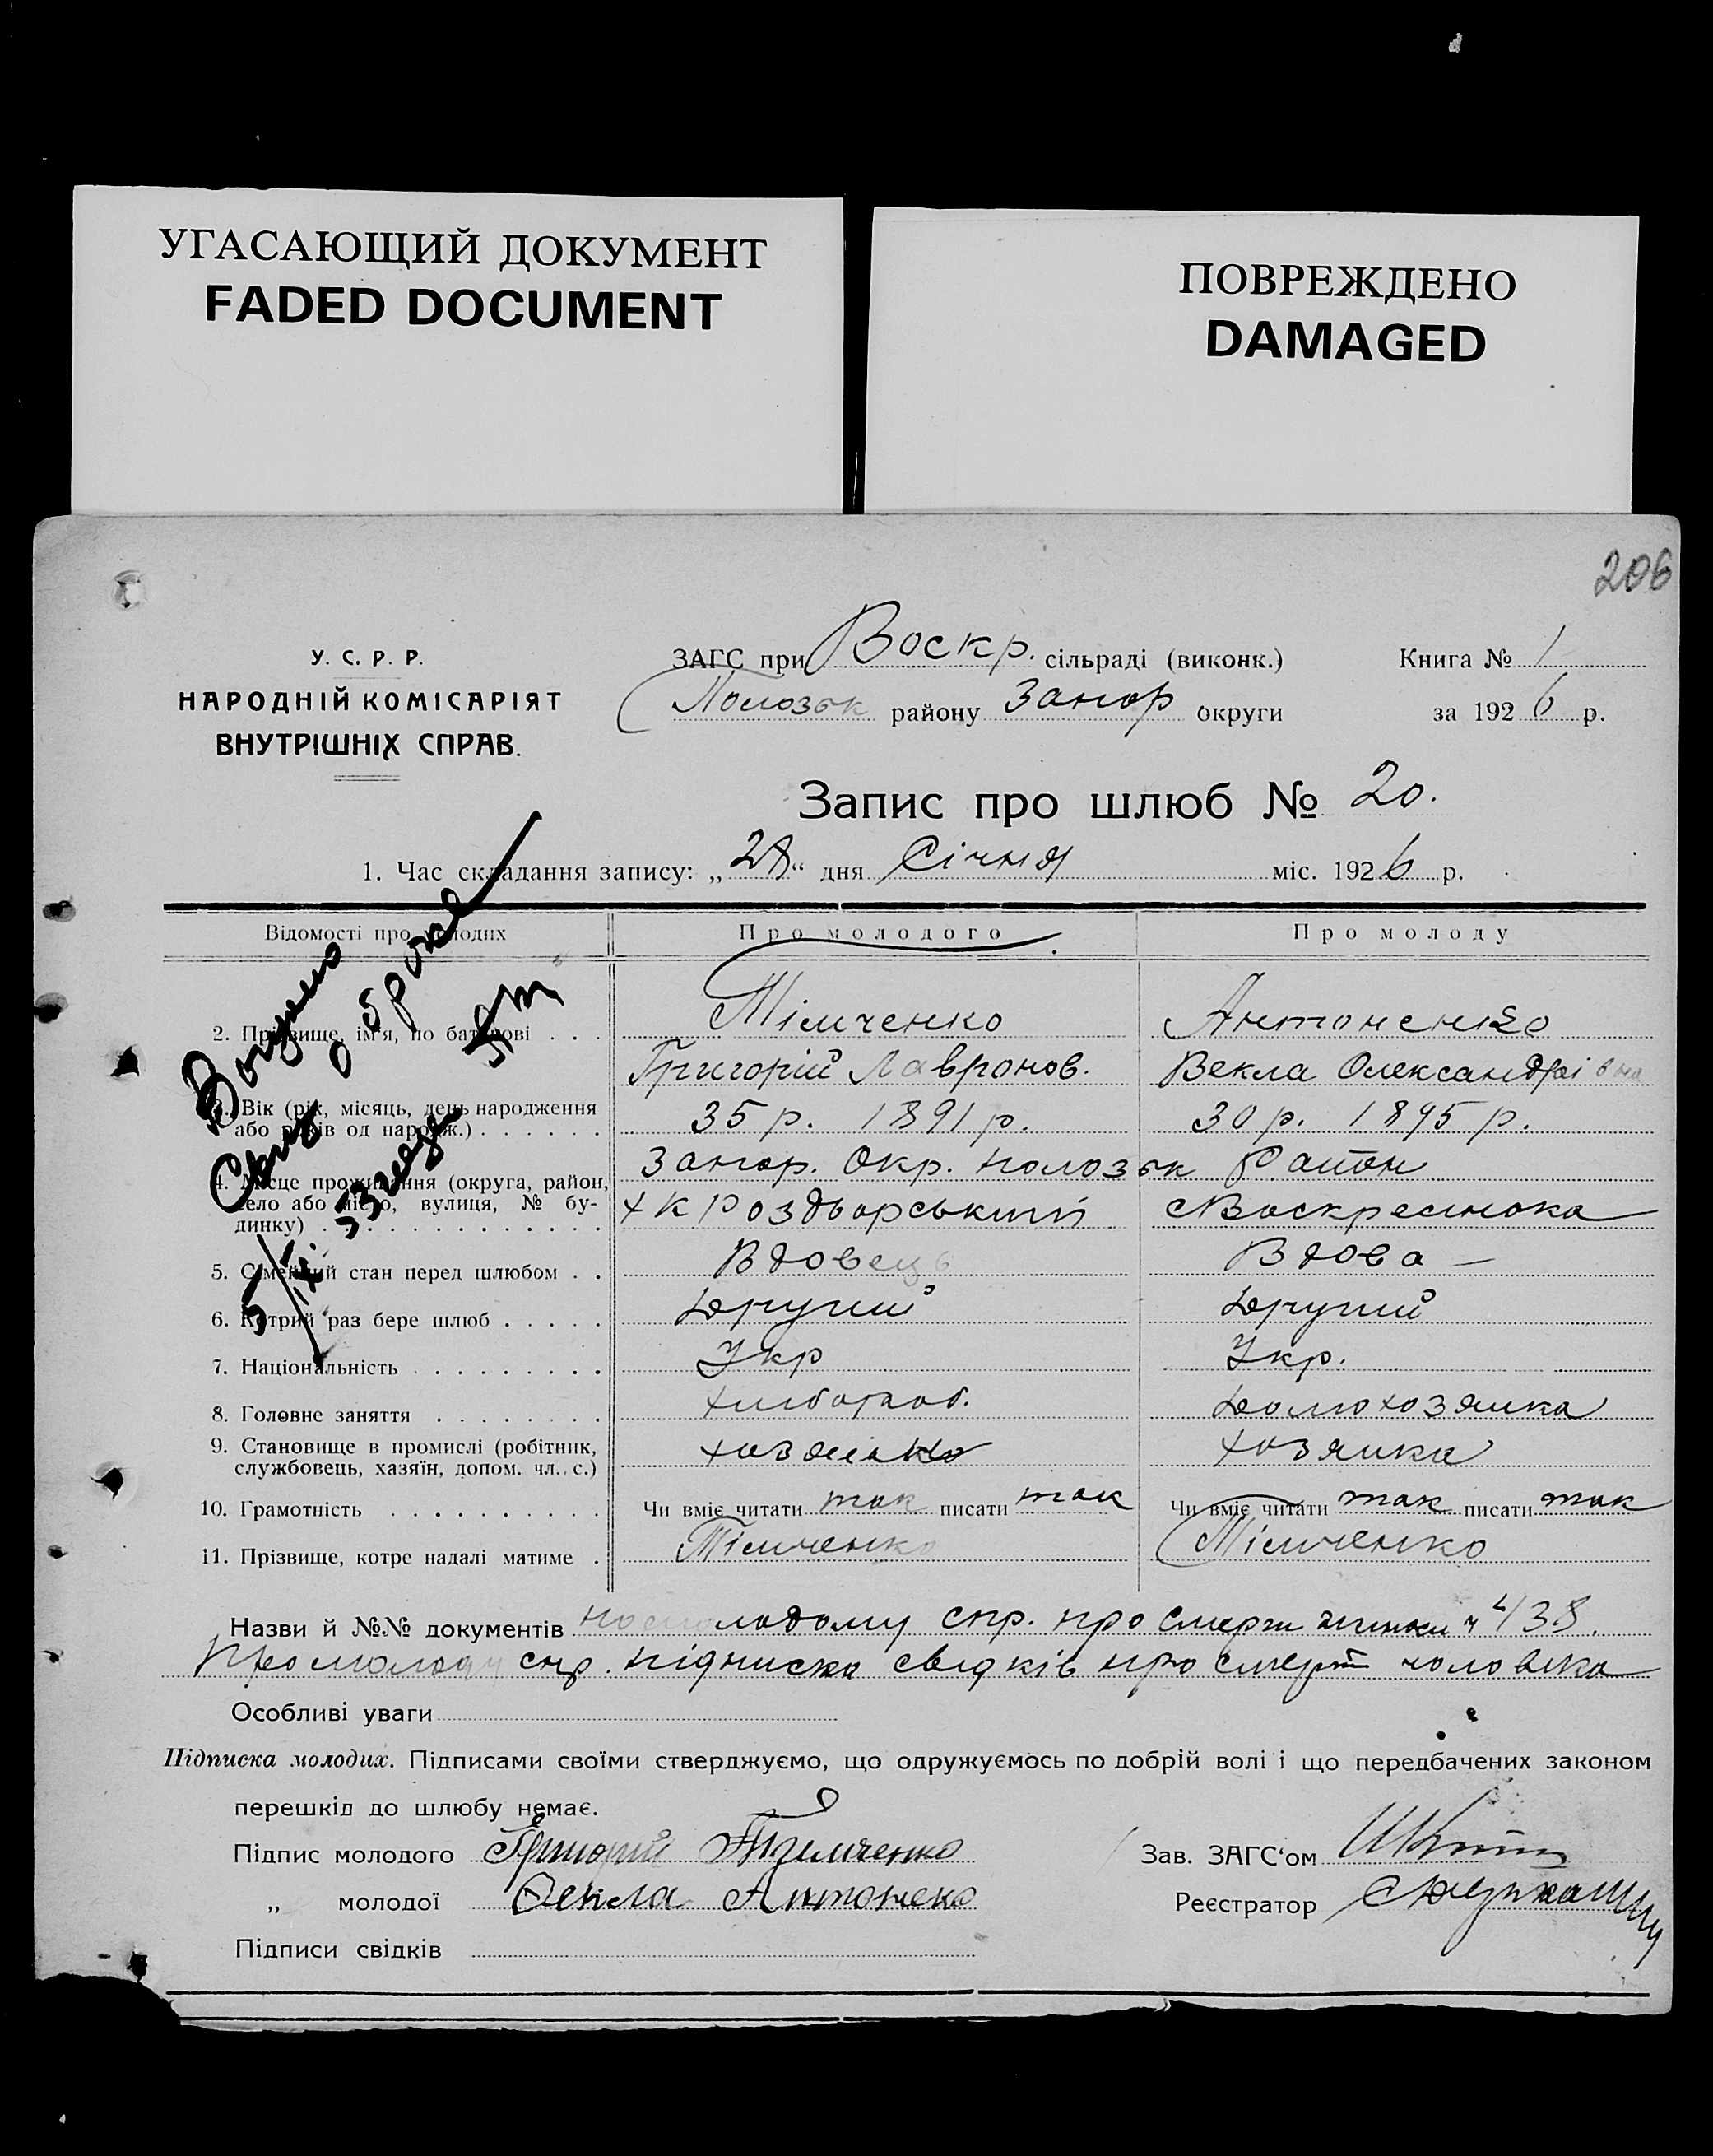 УГАСАЮЩИЙ ДОКУМЕНТ
FADED DOCUMENT
ПОВРЕЖДЕНО
DAMAGED
206
У. С. Р. Р.
НАРОДНІЙ КОМІСАРІЯТ
ВНУТРІШНІХ СПРАВ.
ЗАГС при Воскр. сільраді (виконк.) Книга № 1
Полозьк району Запор округи за 1926 р.
Запис про шлюб № 20.
1. Час складання запису: „28“ дня Січня міс. 1926 р.
Відомості про молодих Про молодого Про молоду
2. Прізвище, ім'я, по батькові . . . Тімченко Антоненко
Григорій Лавронов. Векла Олександрівна
3. Вік (рік, місяць, день народження
або років од народж.) . . . . . . 35 р. 1891 р. 30 р. 1895 р.
Запор. Окр. Полозьк Район
4. Місце проживання (округа, район,
село або місто, вулиця, № бу-
динку) . . . . . . . . . . . . . х К Роздьорський Воскресенока
5. Сімейний стан перед шлюбом . . Вдовець Вдова
6. Котрий раз бере шлюб . . . . . Другий Другий
7. Національність . . . . . . . . . Укр Укр.
8. Головне заняття . . . . . . . . хлібороб. домохозяйка
9. Становище в промислі (робітник,
службовець, хазяїн, допом. чл. с.) хозяйка
10. Грамотність . . . . . . . . . . Чи вміє читати так писати так Чи вміє читати так писати так
11. Прізвище, котре надалі матиме . Тімченко Тімченко
Назви й №№ документів по молодому спр. про смерть жінки ч 4/38.
Про молоду спр. підписка свідків про смерть чоловіка
Особливі уваги
Підписка молодих. Підписами своїми стверджуємо, що одружуємось по добрій волі і що передбачених законом
перешкід до шлюбу немає.
Підпис молодого Григорий Тімченко Зав. ЗАГС'ом
„ молодої Фекла Антонеко Реєстратор
Підписи свідків